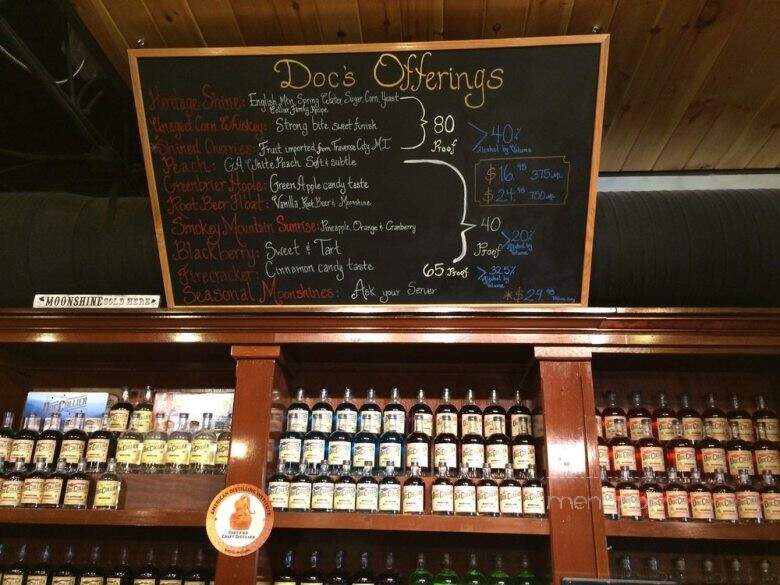 Doc's Offerings
Heritage Shine: English Mtn. Spring Water, Sugar, Corn, Yeast
Collier Family Recipe
Unaged Corn Whiskey: Strong bite, sweet finish
*Shined Cherries: Fruit imported from Traverse City, MI
Peach: GA White Peach Soft & subtle
Greenbrier Apple: Green Apple candy taste
Root Beer Float: Vanilla, Root Beer & Moonshine
Smoky Mountain Sunrise: Pineapple, Orange & Cranberry
Blackberry: Sweet & Tart
Firecracker: Cinnamon candy taste
Seasonal Moonshines: Ask your Server
80
Proof
40%
Alcohol by
Volume
$16.95 375 mL
$24.95 750 mL
40
Proof
20%
Alcohol by
Volume
65 Proof
32.5%
Alcohol by
Volume
*$29.95
MOONSHINE SOLD HERE
DOC COLLIER
AMERICAN DISTILLING INSTITUTE
CERTIFIED
CRAFT DISTILLER
men